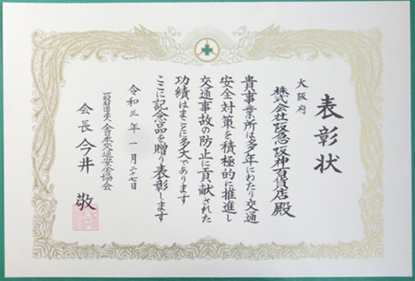 表彰状
大阪府
株式会社阪急阪神百貨店殿
貴事業所は多年にわたり交通
安全対策を積極的に推進し
交通事故の防止に貢献された
功績はまことに多大であります
ここに記念品を贈り表彰します
令和三年一月二十七日
一般財団法人 全日本交通安全協会
会長 今井 敬